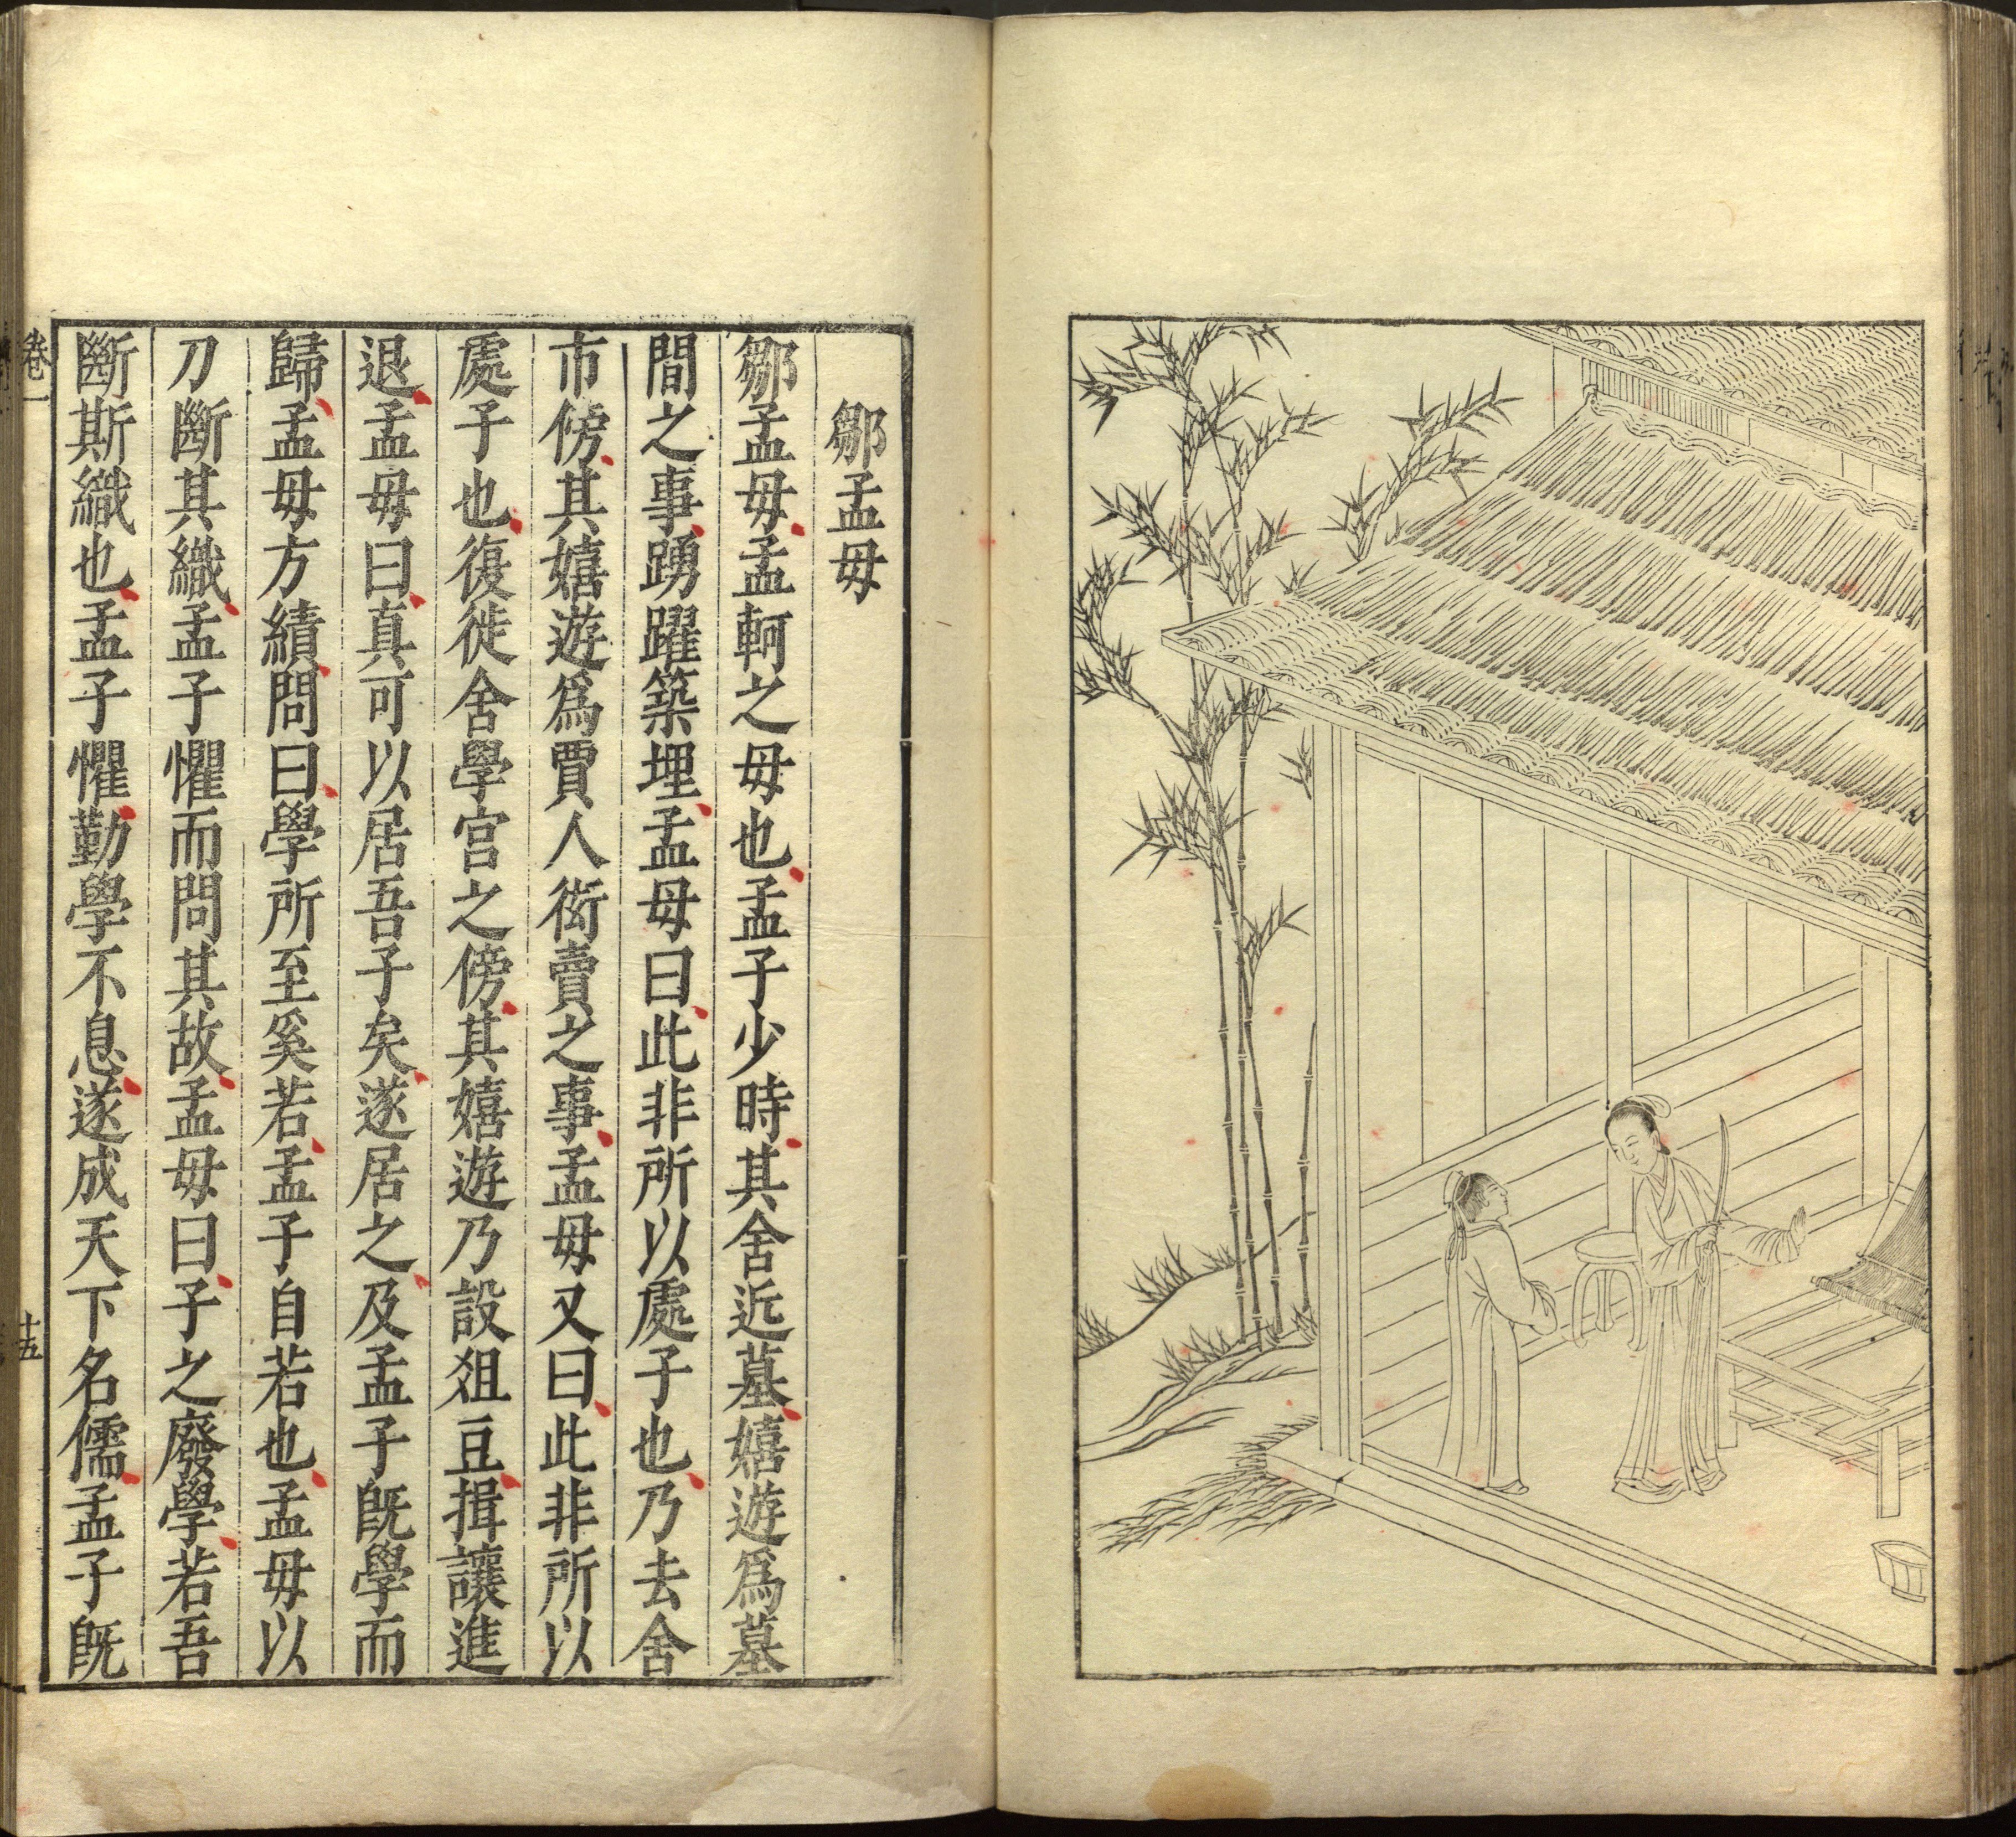 鄒孟母
鄒孟母孟軻之母也孟子少時其舍近墓嬉遊爲墓
間之事踴躍築埋孟母曰此非所以處子也乃去舍
市傍其嬉遊爲賈人衒賣之事孟母又曰此非所以
處子也復徙舍學宮之傍其嬉遊乃設俎豆揖讓進
退孟母曰真可以居吾子矣遂居之及孟子既學而
歸孟母方績問曰學所至奚若孟子自若也孟母以
刀斷其織孟子懼而問其故孟母曰子之廢學若吾
斷斯織也孟子懼勤學不息遂成天下名儒孟子既
卷一
十五